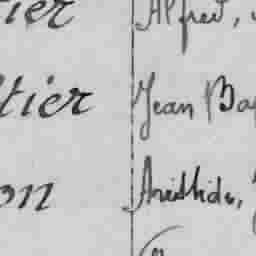 ier Alfred,
tier Jean Ba
on Aristide,